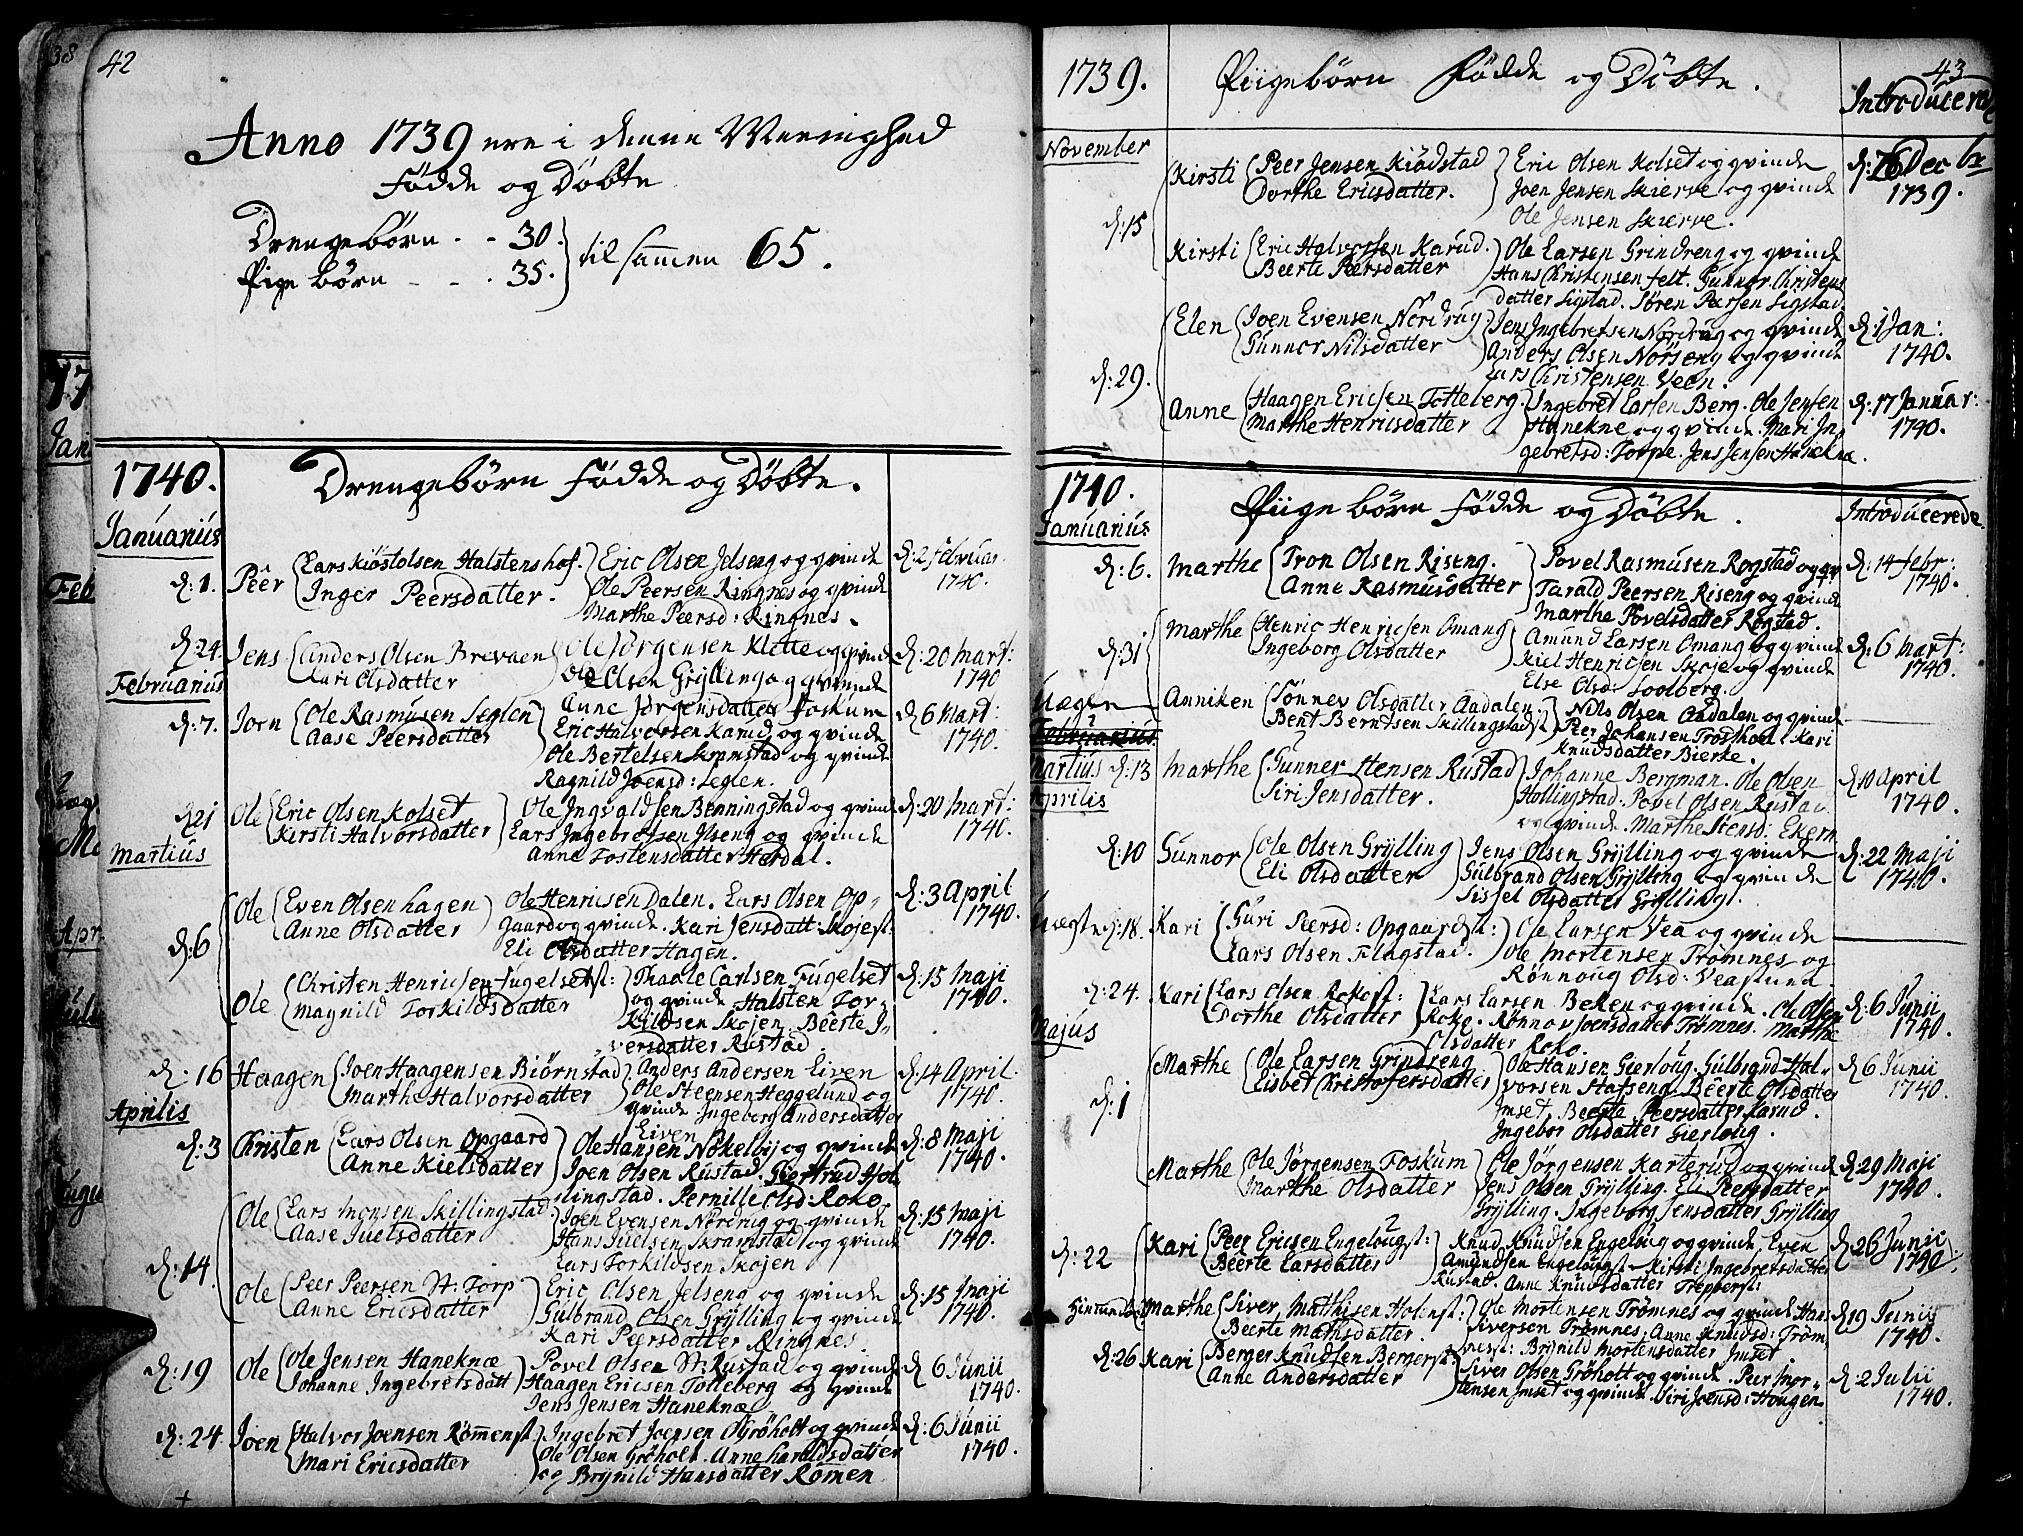 38
42
Anno 1739 ere i denne Meenighed
Fødde og Døbte
Drengebørn . - 30.
Pige børn - - . 35.
til sammen 65.
1740.
Drengebørn Fødde og Døbte.
Januarius
d: 1.
Peer
Lars Kiøstolsen Halstenshof.
Inger Peersdatter.
Eric Olsen Jelseng og qvinde
Ole Peersen Ringnes og qvinde
Marthe Peersd: Ringnes.
d: 2 Februar.
1740.
d: 24.
Jens
Anders Olsen Brevaen
Kari Olsdatter
Ole Jørgensen Klette og qvinde
Ole Olsen Grylling og qvinde
Anne Jørgensdatter Foskum
d: 20 Mart:
1740
Februarius
d: 7.
Joen
Ole Rasmusen Seglen
Aase Peersdatter
Eric Halvorsen Karud og qvinde
Ole Bertelsen Skramstad og qvinde
Ragnild Joensd: Seglen.
d: 6 Mart:
1740.
d: 21
Ole
Eric Olsen Kolset
Kirsti Halvorsdatter
Ole Ingvaldsen Benningstad og qvinde
Lars Ingebretsen Jlseng og qvinde
Anne Tostensdatter Herdal.
d: 20 Mart:
1740.
Martius
d: 6
Ole
Even Olsen Hagen
Anne Olsdatter
Ole Henricsen Dalen. Lars Olsen Op-
gaard og qvinde. Kari Jensdatt: Skojest:
Eli Olsdatter Hagen.
d: 3 April
1740.
Ole
Christen Henricsen Fugelsetst:
Magnild Torkildsdatter
Thaale Carlsen Fugelset
og qvinde Halsten Tor-
kildsen Skojen. Beerte J-
versdatter Rustad.
d: 15 Maji
1740.
d: 16
Haagen
Joen Haagensen Biørnstad
Marthe Halvorsdatter
Anders Andersen Liven
Ole Steensen Heggelund og
qvinde. Ingeborg Andersdatter
Liven
d: 14 April.
1740.
Aprilis
d: 3
Christen
Lars Olsen Opgaard
Anne Kielsdatter
Ole Hansen Nøkelbij og qvinde
Joen Olsen Rustad. Giertrud Hol-
lingstad. Pernille Olsd: Roko.
d: 8 Maji
1740.
d: 14.
Ole
Lars Monsen Skillingstad.
Aase Juelsdatter
Joen Evensen Nordrug og qvinde
Hans Juelsen Skramstad og qvinde
Lars Torkildsen Skojen
d: 15 Maji
1740.
Ole
Peer Peersen N: Torp
Anne Ericsdatter
Eric Olsen Jelseng og qvinde
Gulbrand Olsen Grylling og qvinde
Kari Peersdatter Ringnes.
d: 15 Maji
1740.
d: 19
Ole
Ole Jensen Haneknæ
Johanne Ingebretsdatt
Povel Olsen N: Rustad og qvinde
Haagen Ericsen Totteberg og qvinde
Jens Jensen Haneknæ
d 6 Junii
1740.
d: 24.
Joen
Halvor Joensen Rømenst
Mari Ericsdatter
Ingebret Joensen Grøholt og qvinde
Ole Olsen Grøholt. Anne Haraldsdatter
og Brynild Hansdatter Romen
d: 6 Junii
1740.
43
1739.
Piigebørn Fødde og Døbte.
Introducered
November
d: 15
Kirsti
Peer Jensen Kiødstad
Dorthe Ericsdatter.
Eric Olsen Kolset og qvinde
Joen Jensen Skierve og qvinde
Ole Jensen Skierve.
d: 26 Decbr
1739.
Kirsti
Eric Halvorsen Karud.
Beerte Peersdatter
Ole Larsen Grindreng og qvinde
Hans Christensen Felt. Gunnor Christens
datter Sigstad. Søren Persen Sigstad
d: 29.
Elen
Joen Evensen Nordrug
Gunnor Nilsdatter
Jens Ingebretsen Nordrug og qvinde
Anders Olsen Norseng og qvinde
Lars Christensen Veen.
d: 1 Jan:
1740.
Anne
Haagen Ericsen Totteberg.
Marthe Henricsdatter
Ingebret Larsen Berg. Ole Jensen
Hanekne og qvinde. Mari In-
gebretsd: Torpe. Jens Jensen Hanekne.
d: 17 Januar:
1740.
1740.
Piige børn Fødde og Døbte.
Introducerede
Januarius
d: 6.
Marthe
Tron Olsen Riseng.
Anne Rasmusdatter
Povel Rasmusen Rogstad og qv
Tarald Peersen Riseng og qvinde
Marthe Povelsdatter Rogstad.
d: 14 Febr:
1740.
d: 31
Marthe
Henric Henricsen Omang
Ingeborg Olsdatter
Amund Larsen Omang og qvinde
Kiel Henricsen Skoje og qvinde
Else Olsd: Loolberg.
d: 6 Mart:
1740.
Uægte
Anniken
Sønnev Olsdatter Aadalen
Bent Berntsen Skillingstadst
Nils Olsen Aadalen og qvinde
Peer Johansen Trosthoel. Kari
Knudsdatter Bierke.
Februarius
Martius d: 13
Marthe
Gunner Hensen Rustad
Siri Jensdatter.
Johanne Bergman. Ole Olsen
Hollingstad. Povel Olsen Rustad
og qvinde. Marthe Stensd. Ekern
d: 10 April
1740.
Aprilis
d: 10
Gunnor
Ole Olsen Grylling
Eli Olsdatter
Jens Olsen Grylling og qvinde
Gulbrand Olsen Grylling og qvinde
Sissel Olsdatter Grylling.
d: 22 Maji
1740.
Uægte d: 18.
Kari
Guri Peersd: Opgaardst:
Lars Olsen Flagstad.
Ole Larsen Vea og qvinde
Ole Mortensen Trømnes og
Rønnoug Olsd: Veastuen.
d: 24.
Kari
Lars Olsen Rokost:
Dorthe Olsdatter
Lars Larsen Beken og qvinde. Ole Olsen
Roko. Rønnov Joensdatter Trømnes. Marthe
Olsdatter Roko.
d: 6 Junii
1740.
Majus
d: 1
Marthe
Ole Larsen Grindreng
Lisbet Christofersdatter
Ole Hansen Gierloug. Gulbrand Hal-
vorsen Stafseng. Beerte Olsdatter
Imset. Beerte Peersdatter Karud.
Ingebor Olsdatter Gierloug.
d: 6 Junii
1740.
Marthe
Ole Jørgensen Foskum
Marthe Olsdatter
Ole Jørgensen Karterud og qvinde
Jens Olsen Grylling. Eli Peersdatter
Grylling. Ingeborg Jensdatter Grylling
d: 29 Maji
1740.
d: 22
Kari
Peer Ericsen Engelougst:
Beerte Larsdatter
Knud Knudsen Engeloug og qvinde. Even
Amundsen Engelougst. Kirsti Ingebretsdatter
Rustad. Anne Knudsdatter Treppest:
d: 26 Junii
1740.
Marthe
Siver Mathisen Holenst:
Beerte Mathsdatter.
Ole Mortensen Trømnes og qvinde Han
Siversen Trømnes. Anne Knudsd: Trøm
nest: Brynild Mortensdatter Imset
d: 19 Junii
1740.
d: 26
Kari
Berger Knudsen Bergerst:
Anne Andersdatter
Siver Olsen Grøholt og qvinde. Peer Mor-
tensen Imset og qvinde. Siri Joensd: Hougen
d: 2 Julii
1740.